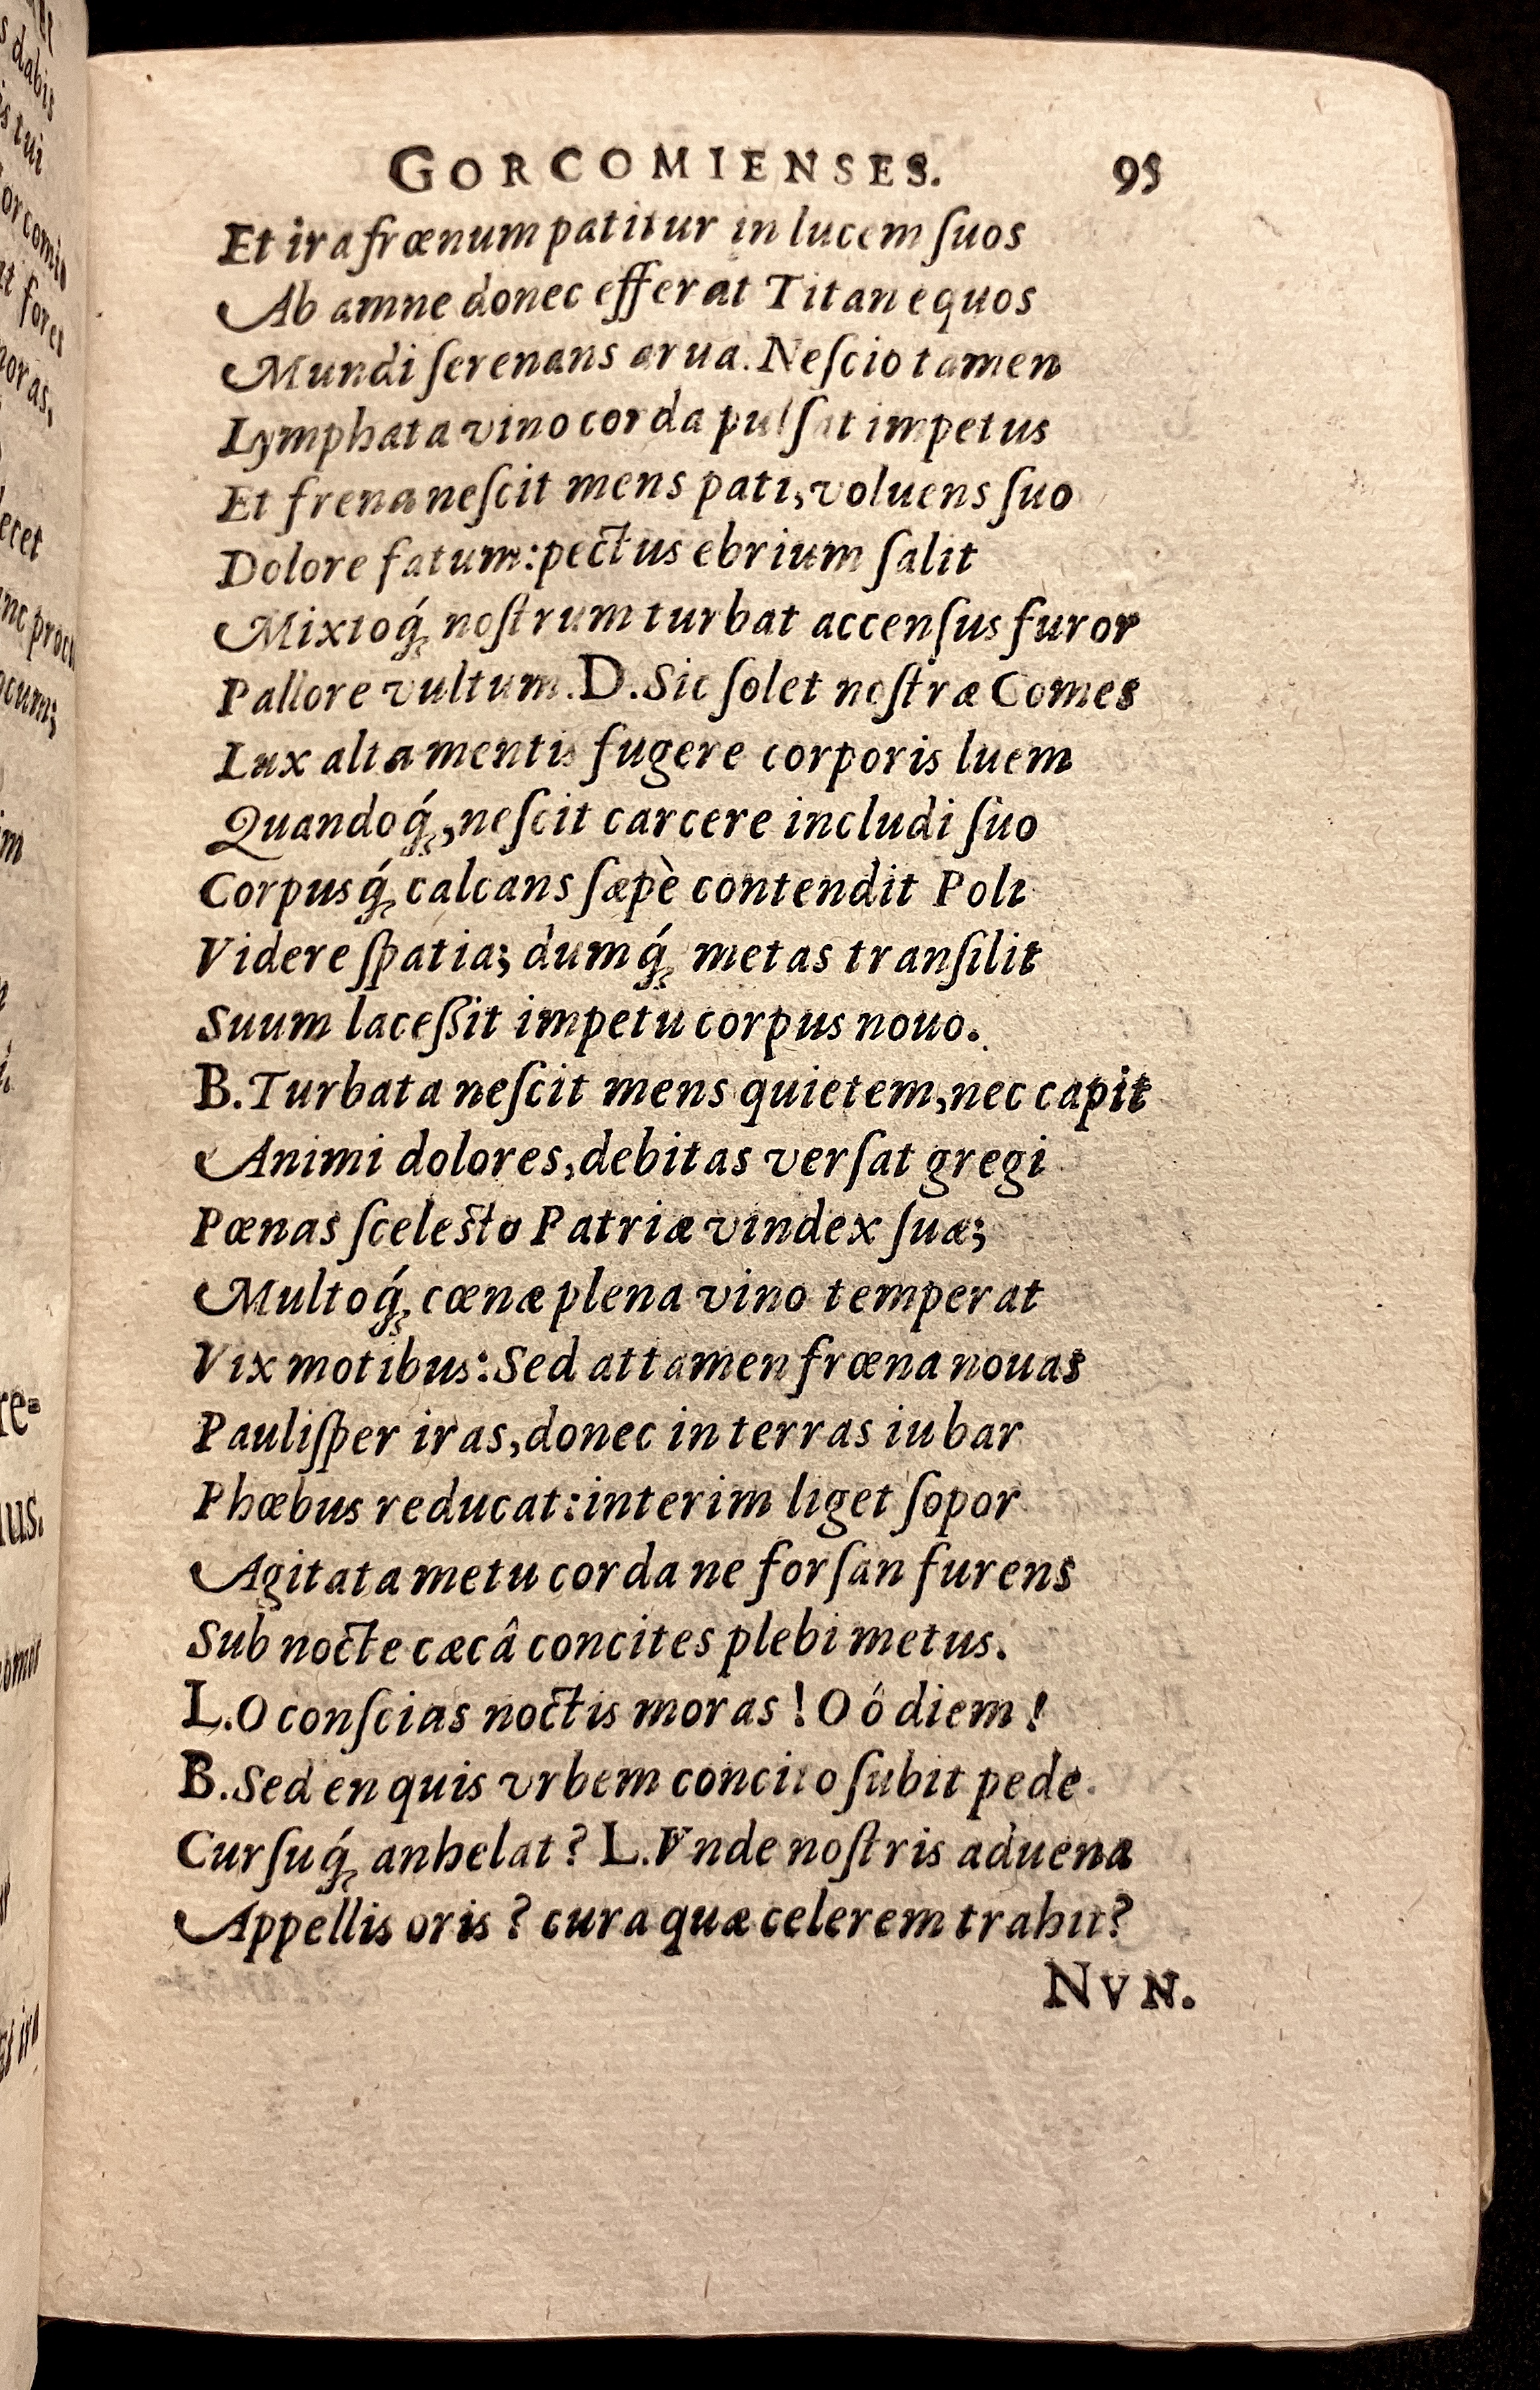 GORCOMIENSES. 95
Et ira frœnum patitur in lucem ſuos
Ab amne donec efferat Titan equos
Mundi ſerenans arua. Neſcio tamen
Lymphata vino corda pulſat impetus
Et frena neſcit mens pati, voluens ſuo
Dolore fatum: pectus ebrium ſalit
Mixtoq́ noſtrum turbat accenſus furor
Pallore vultum. D. Sic ſolet noſtræ Comes
Lux alta mentis fugere corporis luem
Quandoq́, neſcit carcere includi ſuo
Corpusq́ calcans ſæpè contendit Poli
Videre ſpatia; dumq́ metas tranſilit
Suum laceſſit impetu corpus nouo.
B. Turbata neſcit mens quietem, nec capit
Animi dolores, debitas verſat gregi
Pœnas ſceleſto Patriæ vindex ſuæ;
Multoq́ cœnæ plena vino temperat
Vix motibus: Sed attamen frœna nouas
Pauliſper iras, donec in terras iubar
Phœbus reducat: interim liget ſopor
Agitata metu corda ne forſan furens
Sub nocte cæcâ concites plebi metus.
L. O conſcias noctis moras! O ó diem!
B. Sed en quis vrbem concito ſubit pede
Curſuq́ anhelat? L. Vnde noſtris aduena
Appellis oris? cura quæ celerem trahit?
NVN.